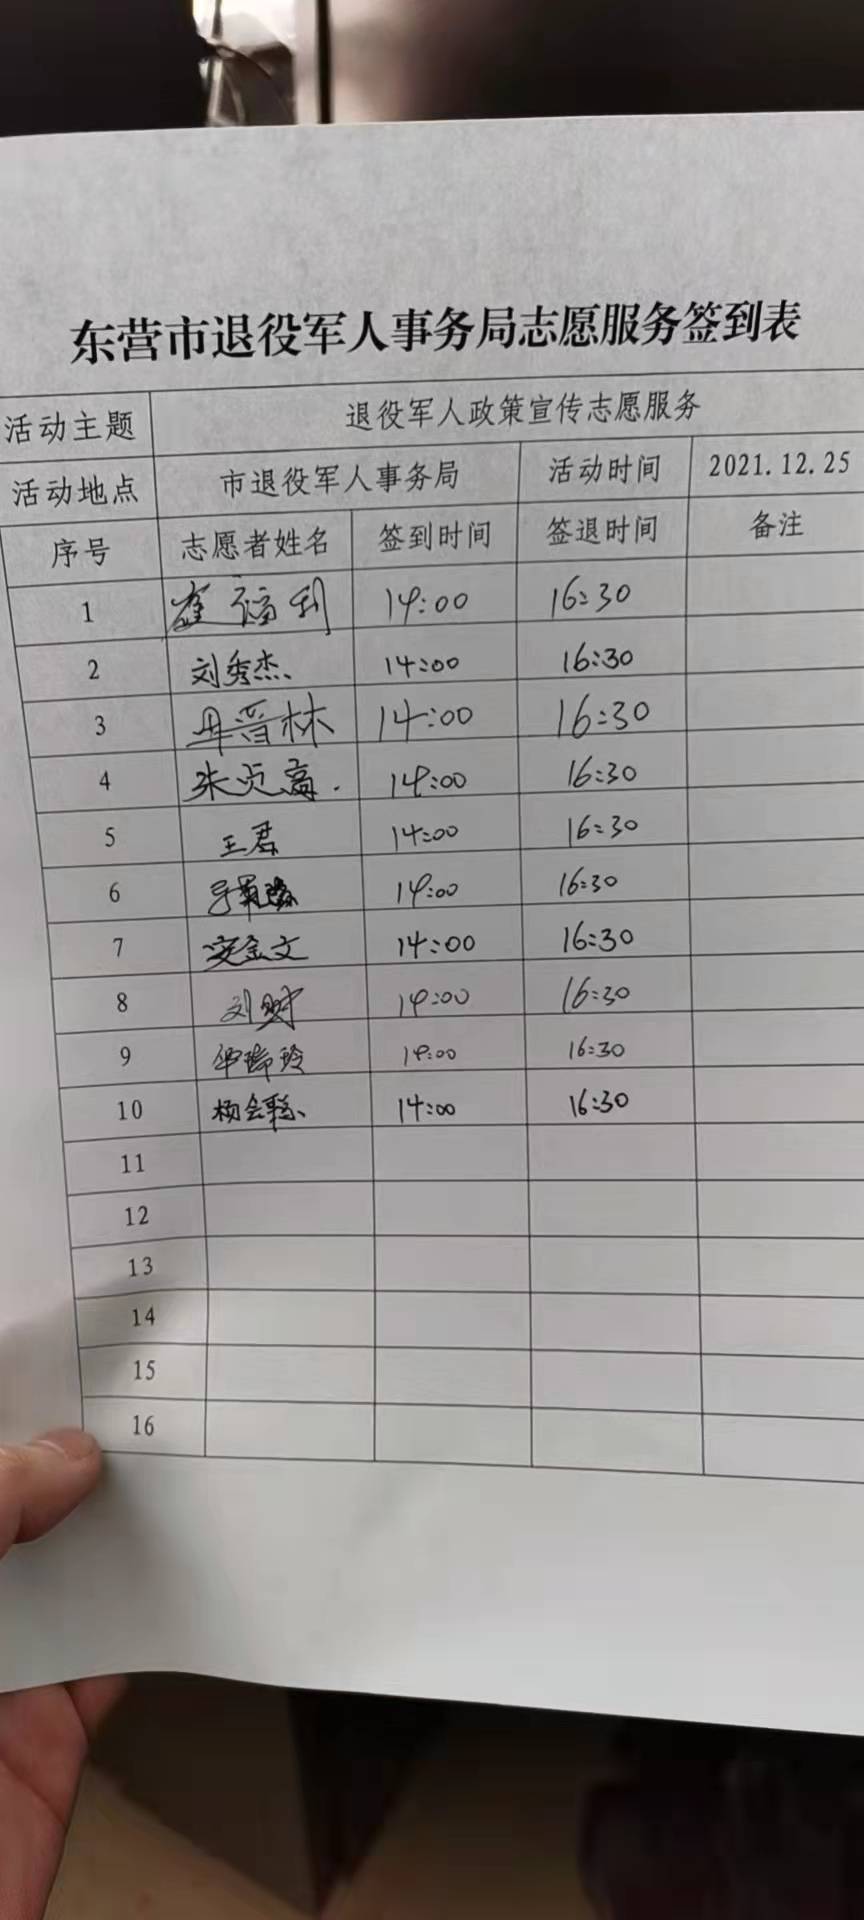 东营市退役军人事务局志愿服务签到表
活动主题 退役军人政策宣传志愿服务
活动地点 市退役军人事务局 活动时间 2021.12.25
序号 志愿者姓名 签到时间 签退时间 备注
1 崔福利 14:00 16:30
2 刘秀杰 14:00 16:30
3 林 14:00 16:30
4 朱贞高 14:00 16:30
5 王君 14:00 16:30
6 14:00 16:30
7 安金文 14:00 16:30
8 刘财 14:00 16:30
9 玲 14:00 16:30
10 杨会 14:00 16:30
11
12
13
14
15
16